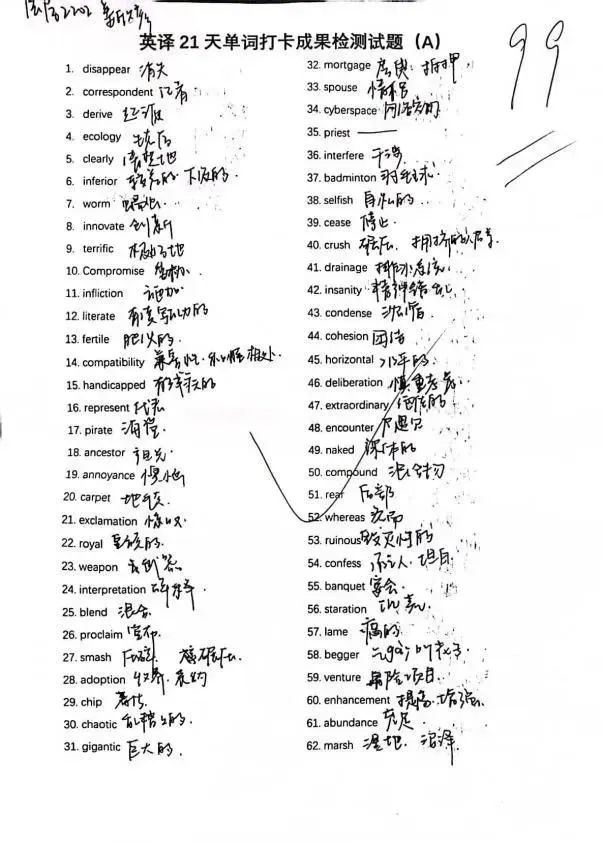 英译 21 天单词打卡成果检测试题（A）
99
1. disappear 消失
2. correspondent 记者
3. derive 起源
4. ecology 生态
5. clearly 清楚地
6. inferior 下级的
7. worm
8. innovate 创新
9. terrific
10. Compromise
11. infliction 施加
12. literate 有读写能力的
13. fertile 肥沃的
14. compatibility 兼容性.
15. handicapped 有残疾的
16. represent 代表
17. pirate 海盗
18. ancestor 祖先
19. annoyance
20. carpet 地毯
21. exclamation 惊叹
22. royal 皇家的
23. weapon 武器
24. interpretation
25. blend 混合
26. proclaim 宣布
27. smash
28. adoption 收养.
29. chip
30. chaotic
31. gigantic 巨大的.
32. mortgage 房贷. 抵押
33. spouse
34. cyberspace 网络空间
35. priest
36. interfere 干涉
37. badminton 羽毛球.
38. selfish 自私的
39. cease 停止
40. crush
41. drainage 排水系统.
42. insanity 精神错乱
43. condense
44. cohesion 团结
45. horizontal 水平的
46. deliberation 慎重考虑
47. extraordinary
48. encounter
49. naked 裸体的
50. compound 混合物
51. rear 后部
52. whereas 然而
53. ruinous 毁灭性的
54. confess
55. banquet 宴会
56. staration
57. lame
58. begger
59. venture 冒险项目
60. enhancement 提高. 增强
61. abundance 充足
62. marsh 湿地. 沼泽